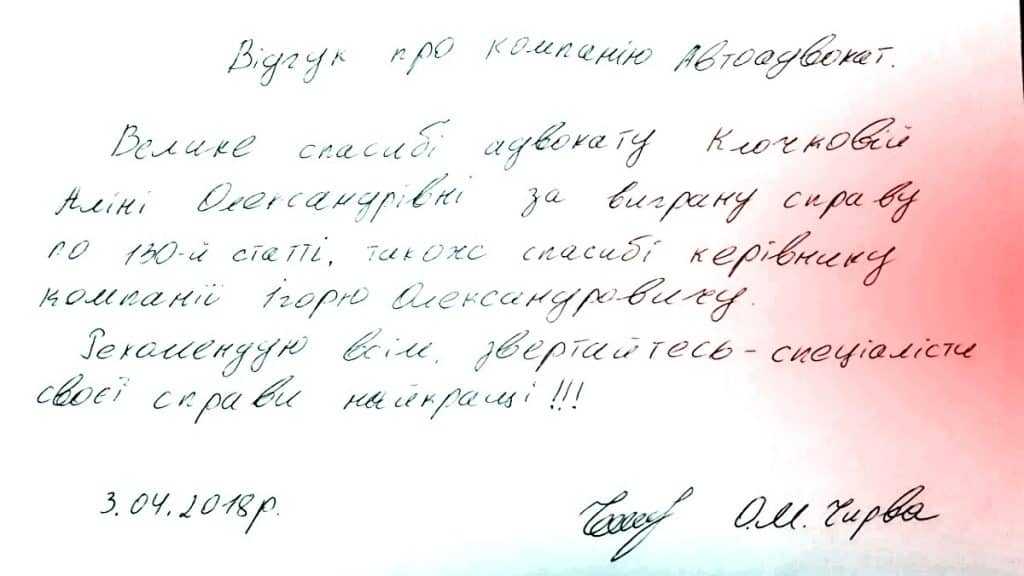 Відгук про компанію Автоадвокат.
Велике спасибі адвокату Клочковій
Аліні Олександрівні за виграну справу
по 130-й статті, також спасибі керівнику
компанії Ігорю Олександровичу.
Рекомендую всім, звертайтесь - спеціалісти
своєї справи найкращі!!!
3.04.2018р. О.М. Чирва